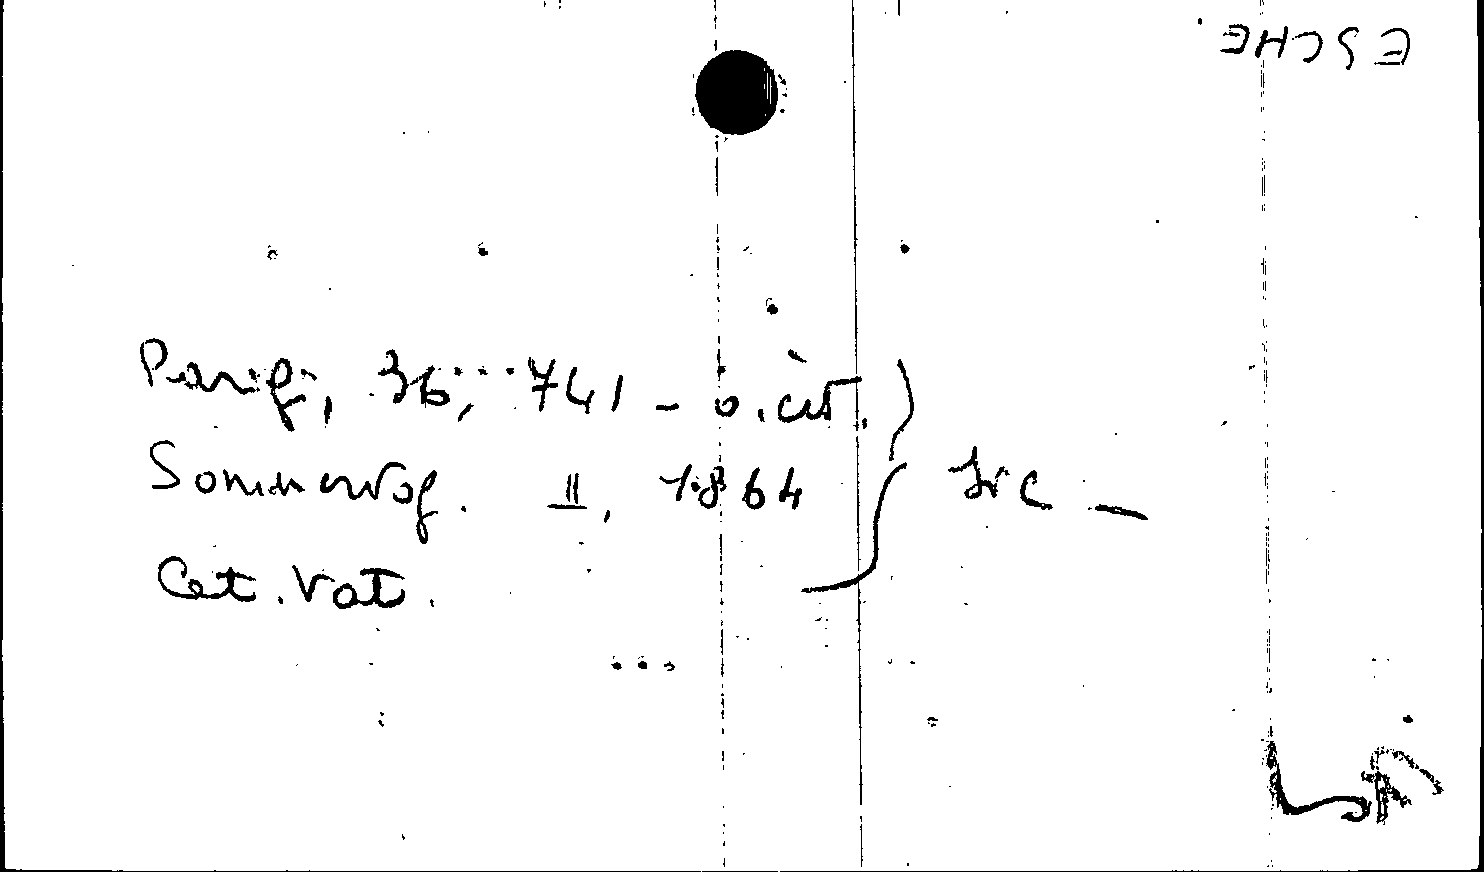 ESCHE
Parigi, 36, 741 - o. cit.
Sommervog. II, 1864
Cat. Vat.